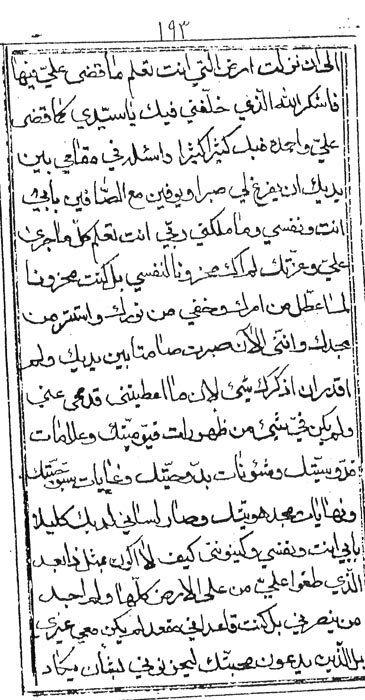 ١٩٣
الى ان نزلت ارض التي انت تعلم ما قضى علي فيها
فاشكر الله الذي خلقني فيك يا سيدي كما قضى
علي واحمده فيك كثيرا كثيرا واسئله في مقامي بين
يديك ان يفرغ لي صبرا ويوفين مع الصافين بابي
انت ونفسي وما ملكني ربي انت تعلم كل ما جرى
علي وعزتك لم اك محزونا لنفسي بل كنت محزونا
لما عطل من امرك وخفي من نورك واستتر من
مجدك وانني الآن صرت صامتا بين يديك ولم
اقدر ان اذكرك بشئ لان ما اعطيتني قد محى عني
ولم يكن في شئ من ظهورات قيوميتك وعلامات
قدوسيتك وشئونات بدوحيتك وغايات
ونهايات مجد هويتك وصار لساني لديك كليلا
بابي انت ونفسي وكينونتي كيف لا اكون بمثل ذا بعد
الذي طغوا علي من على الارض كلها ولم اجد
من ينصرني بل كنت قاعدا في مقعد لم يكن معي غيري
بل الذين يدعون محبتك ليحزنوني بشان يكاد